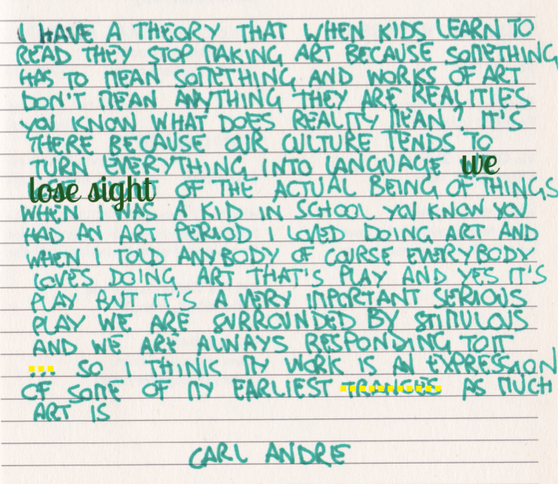 I HAVE A THEORY THAT WHEN KIDS LEARN TO
READ THEY STOP MAKING ART BECAUSE SOMETHING
HAS TO MEAN SOMETHING AND WORKS OF ART
DON'T MEAN ANYTHING THEY ARE REALITIES
YOU KNOW WHAT DOES REALITY MEAN? IT'S
THERE BECAUSE OUR CULTURE TENDS TO
TURN EVERYTHING INTO LANGUAGE we
lose sight OF THE ACTUAL BEING OF THINGS
WHEN I WAS A KID IN SCHOOL YOU KNOW YOU
HAD AN ART PERIOD I LOVED DOING ART AND
WHEN I TOLD ANYBODY OF COURSE EVERYBODY
LOVES DOING ART THAT'S PLAY AND YES IT'S
PLAY BUT IT'S A VERY IMPORTANT SERIOUS
PLAY WE ARE SURROUNDED BY STIMULOUS
AND WE ARE ALWAYS RESPONDING TO IT
... SO I THINK MY WORK IS AN EXPRESSION
OF SOME OF MY EARLIEST AS MUCH
ART IS
CARL ANDRE